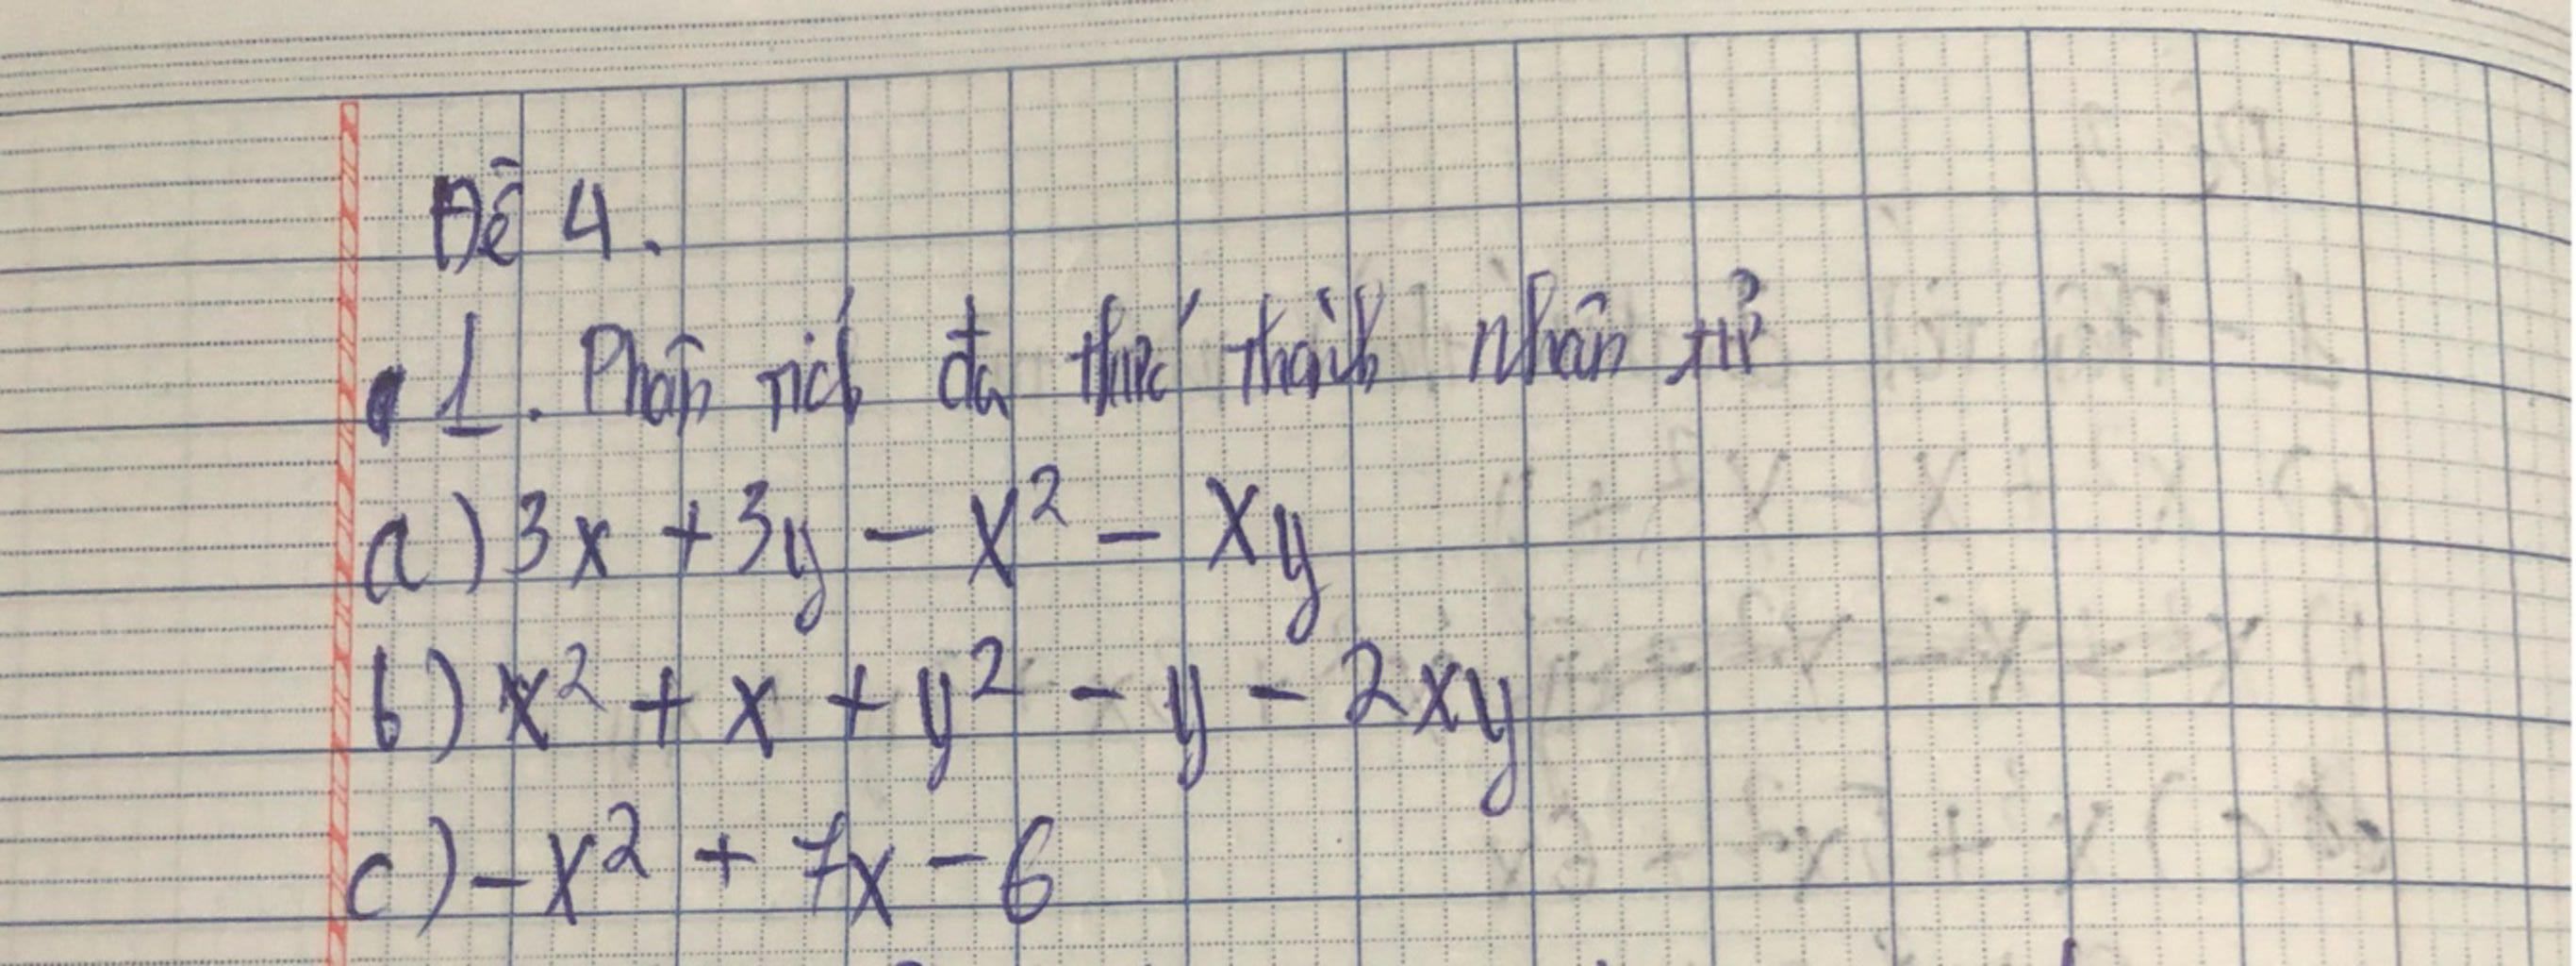 Đề 4.
1. Phân tích đa thức thành nhân tử
a) 3x + 3y - x² - xy
b) x² + x + y² - y - 2xy
c) -x² + 7x - 6